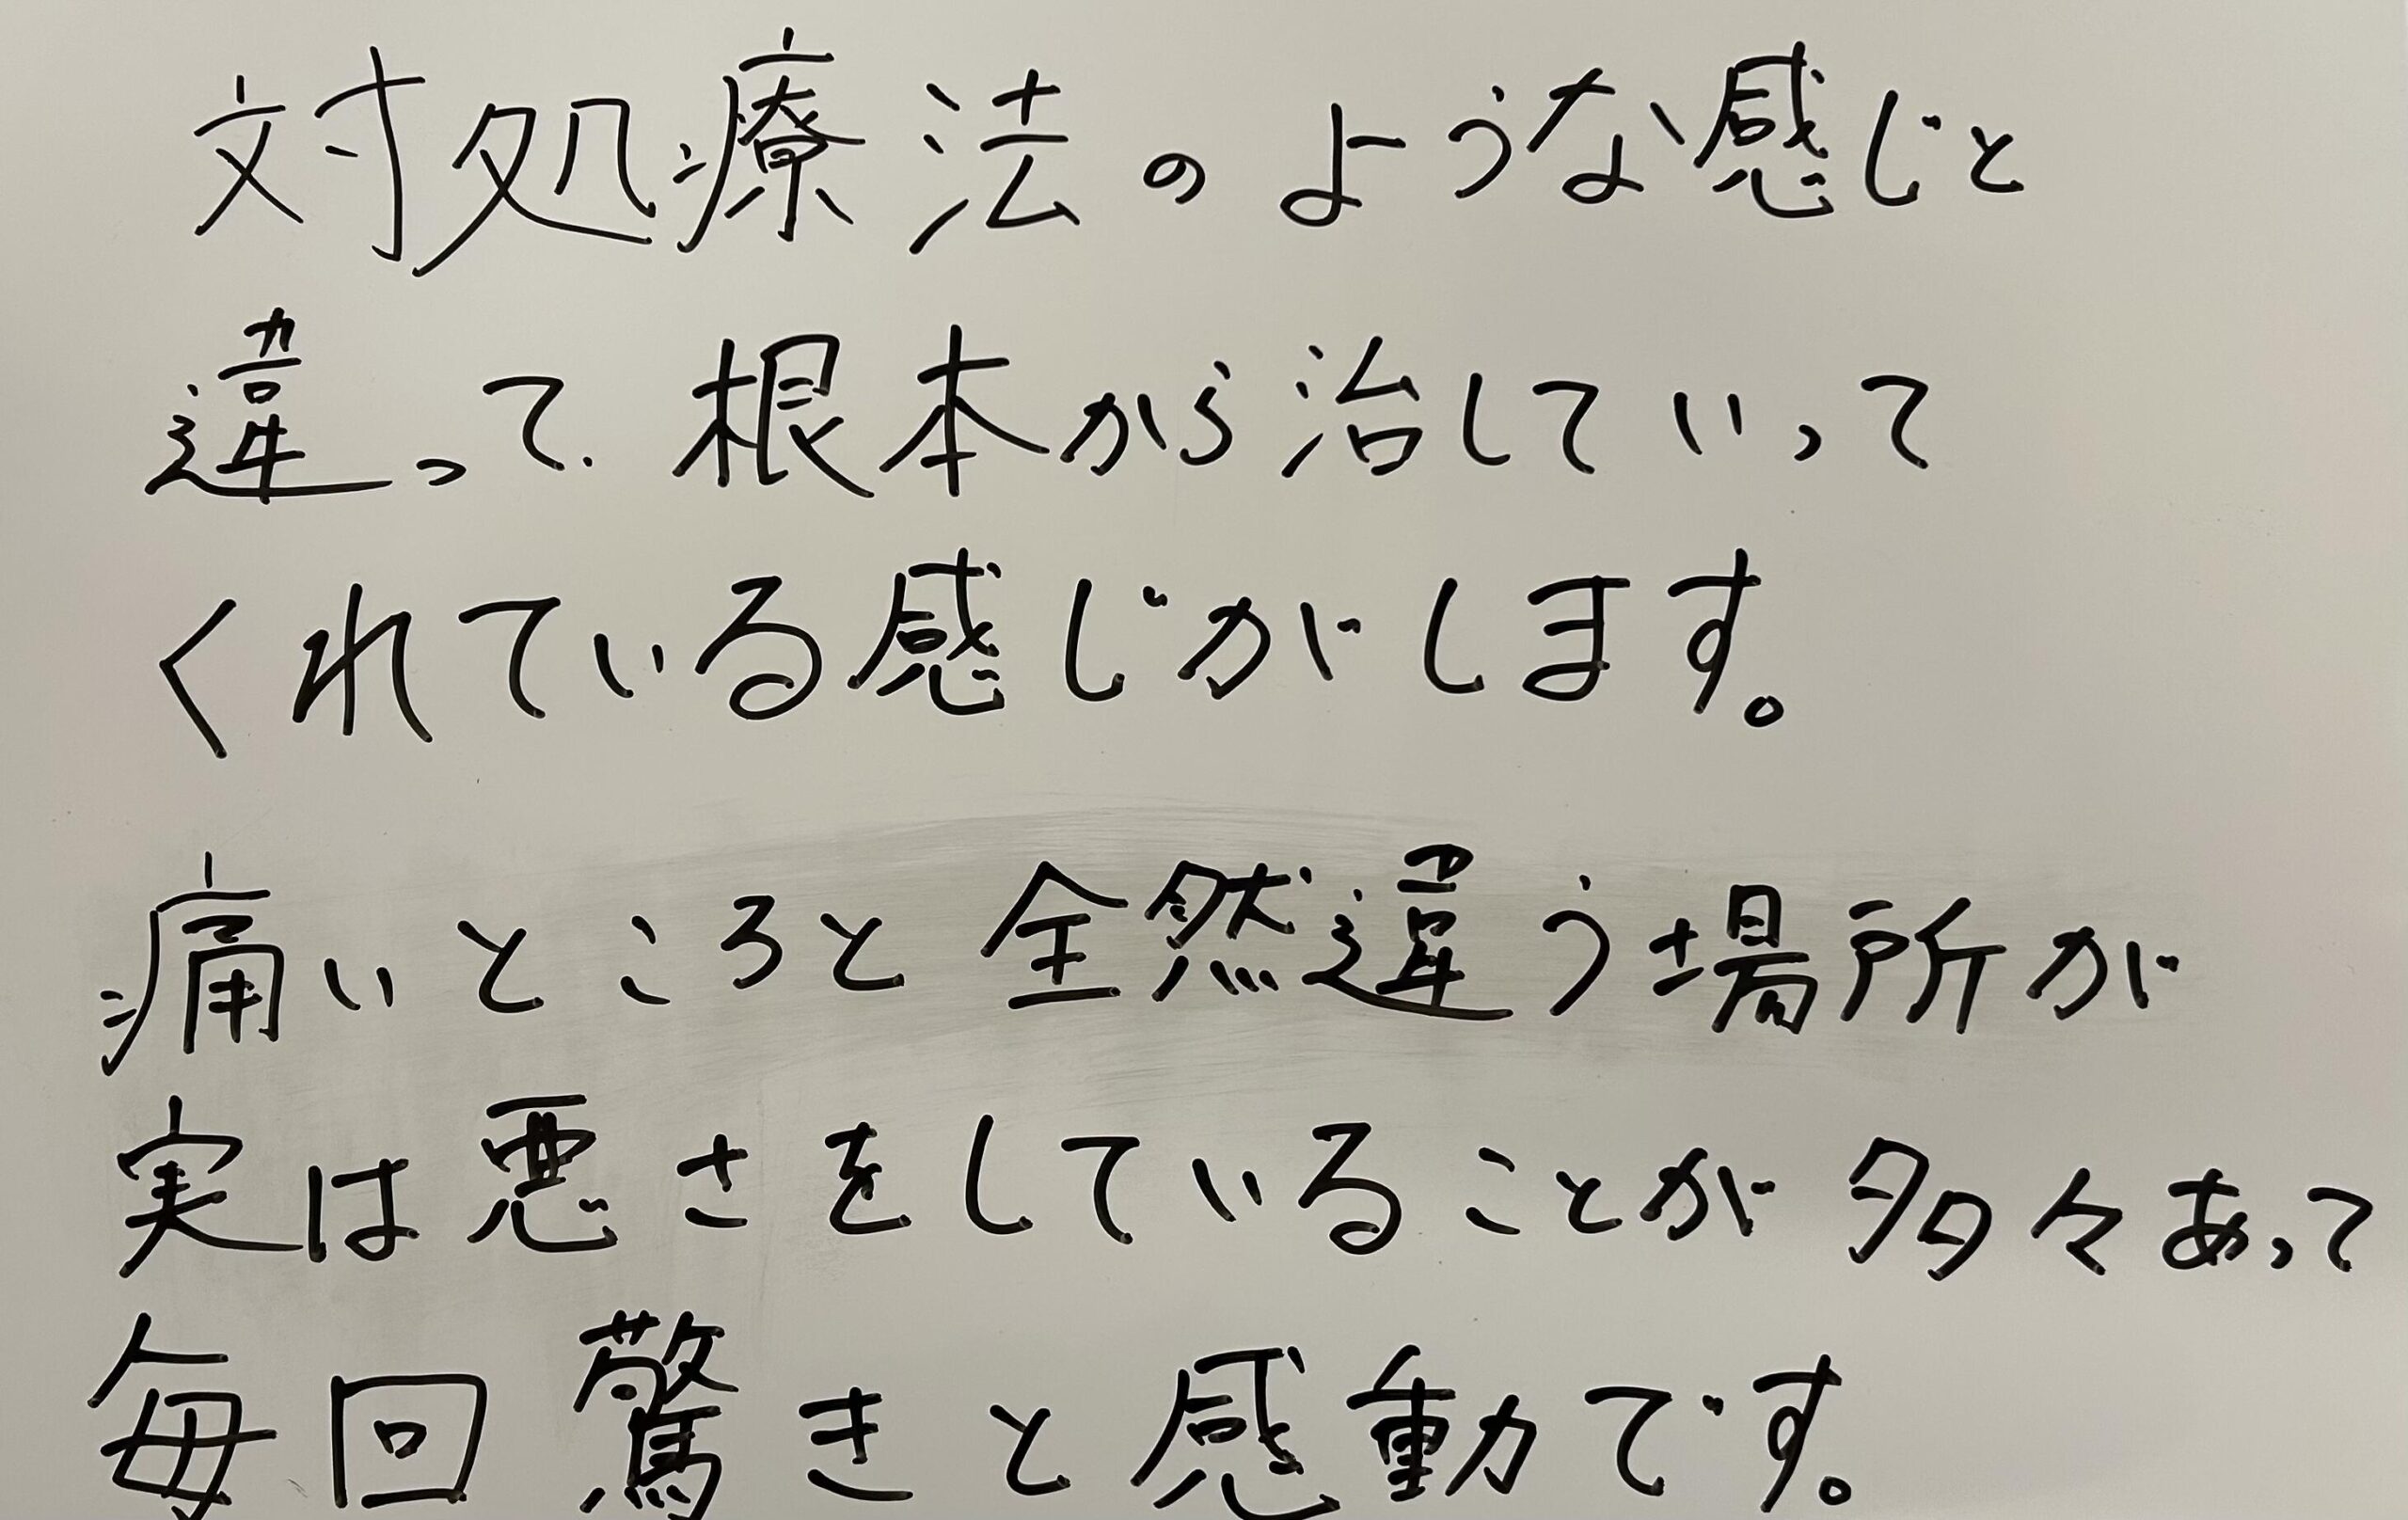 対処療法のような感じと
違って.根本から治していって
くれている感じがします。
痛いところと全然違う場所が
実は悪さをしていることが多々あって
毎回驚きと感動です。